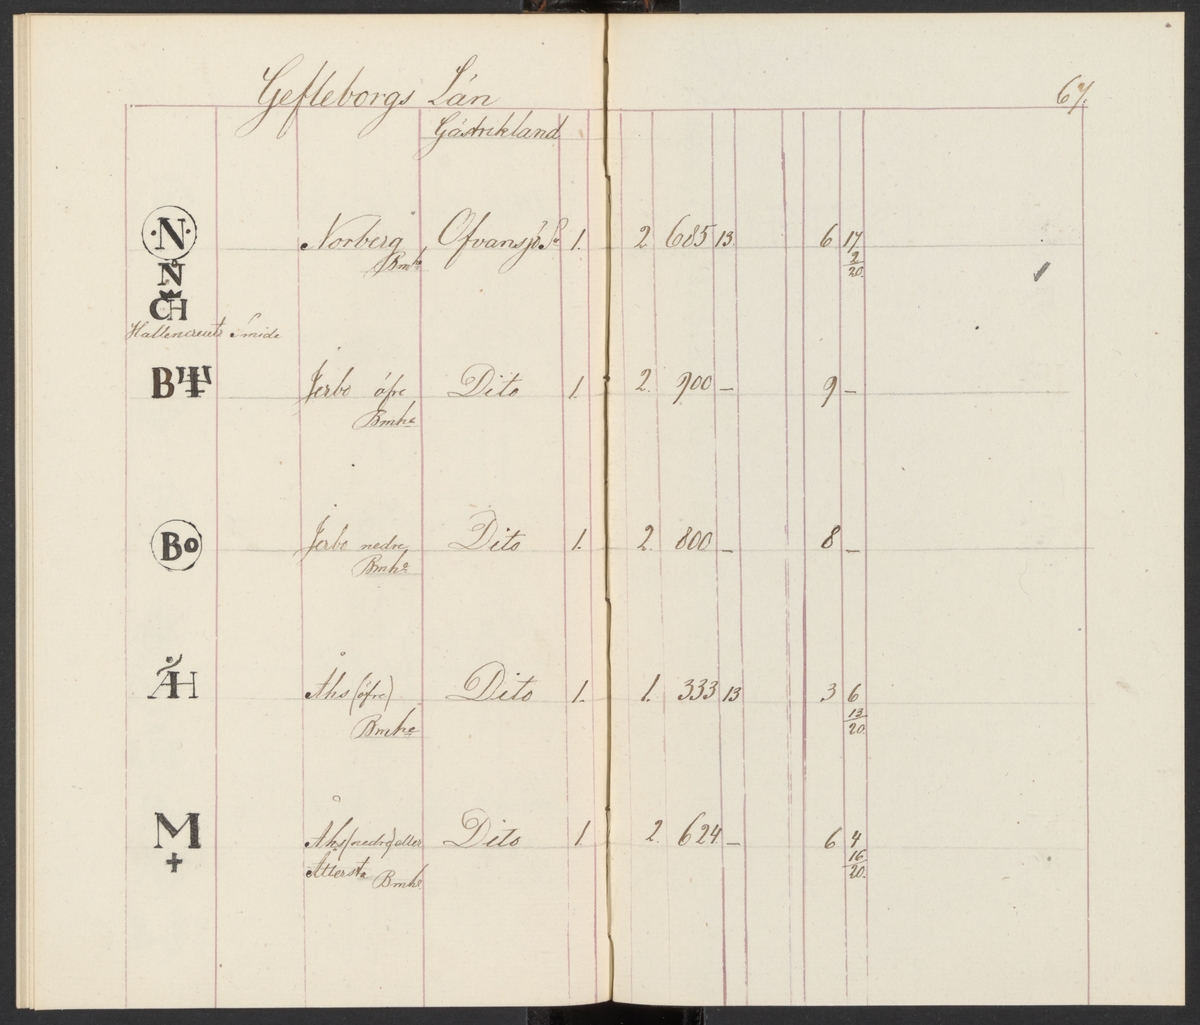 Gefleborgs Län
67.
Gästrikland
·N· Norberg Ofvansjö Sn 1. 2 685 13. 6 17
Bmhe 2/20.
N
CH
Hallencreutz Smide
B Jerbo öfre Dito 1. 2. 900 — 9 —
Bmhe
Bo Jerbo nedre Dito 1. 2. 800 — 8 —
Bmhe
ÅH Åhs (öfre) Dito 1. 1. 333 13 3 6
Bmhe 13/20.
M Åhs (nedre) eller Dito 1. 2. 624. — 6 4
Åttersta Bmhe 16/20.